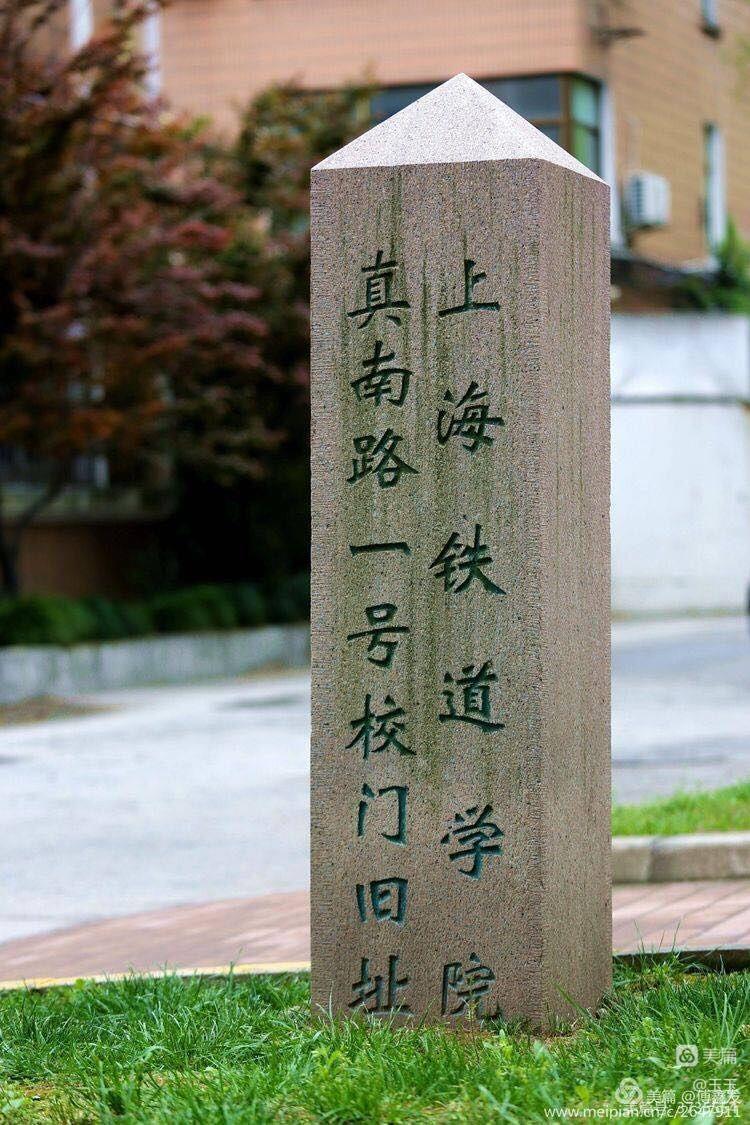 上海铁道学院
真南路一号校门旧址
美篇
@玉玉
美篇 @傅鑫发
www.meipian.cn/c/2647911